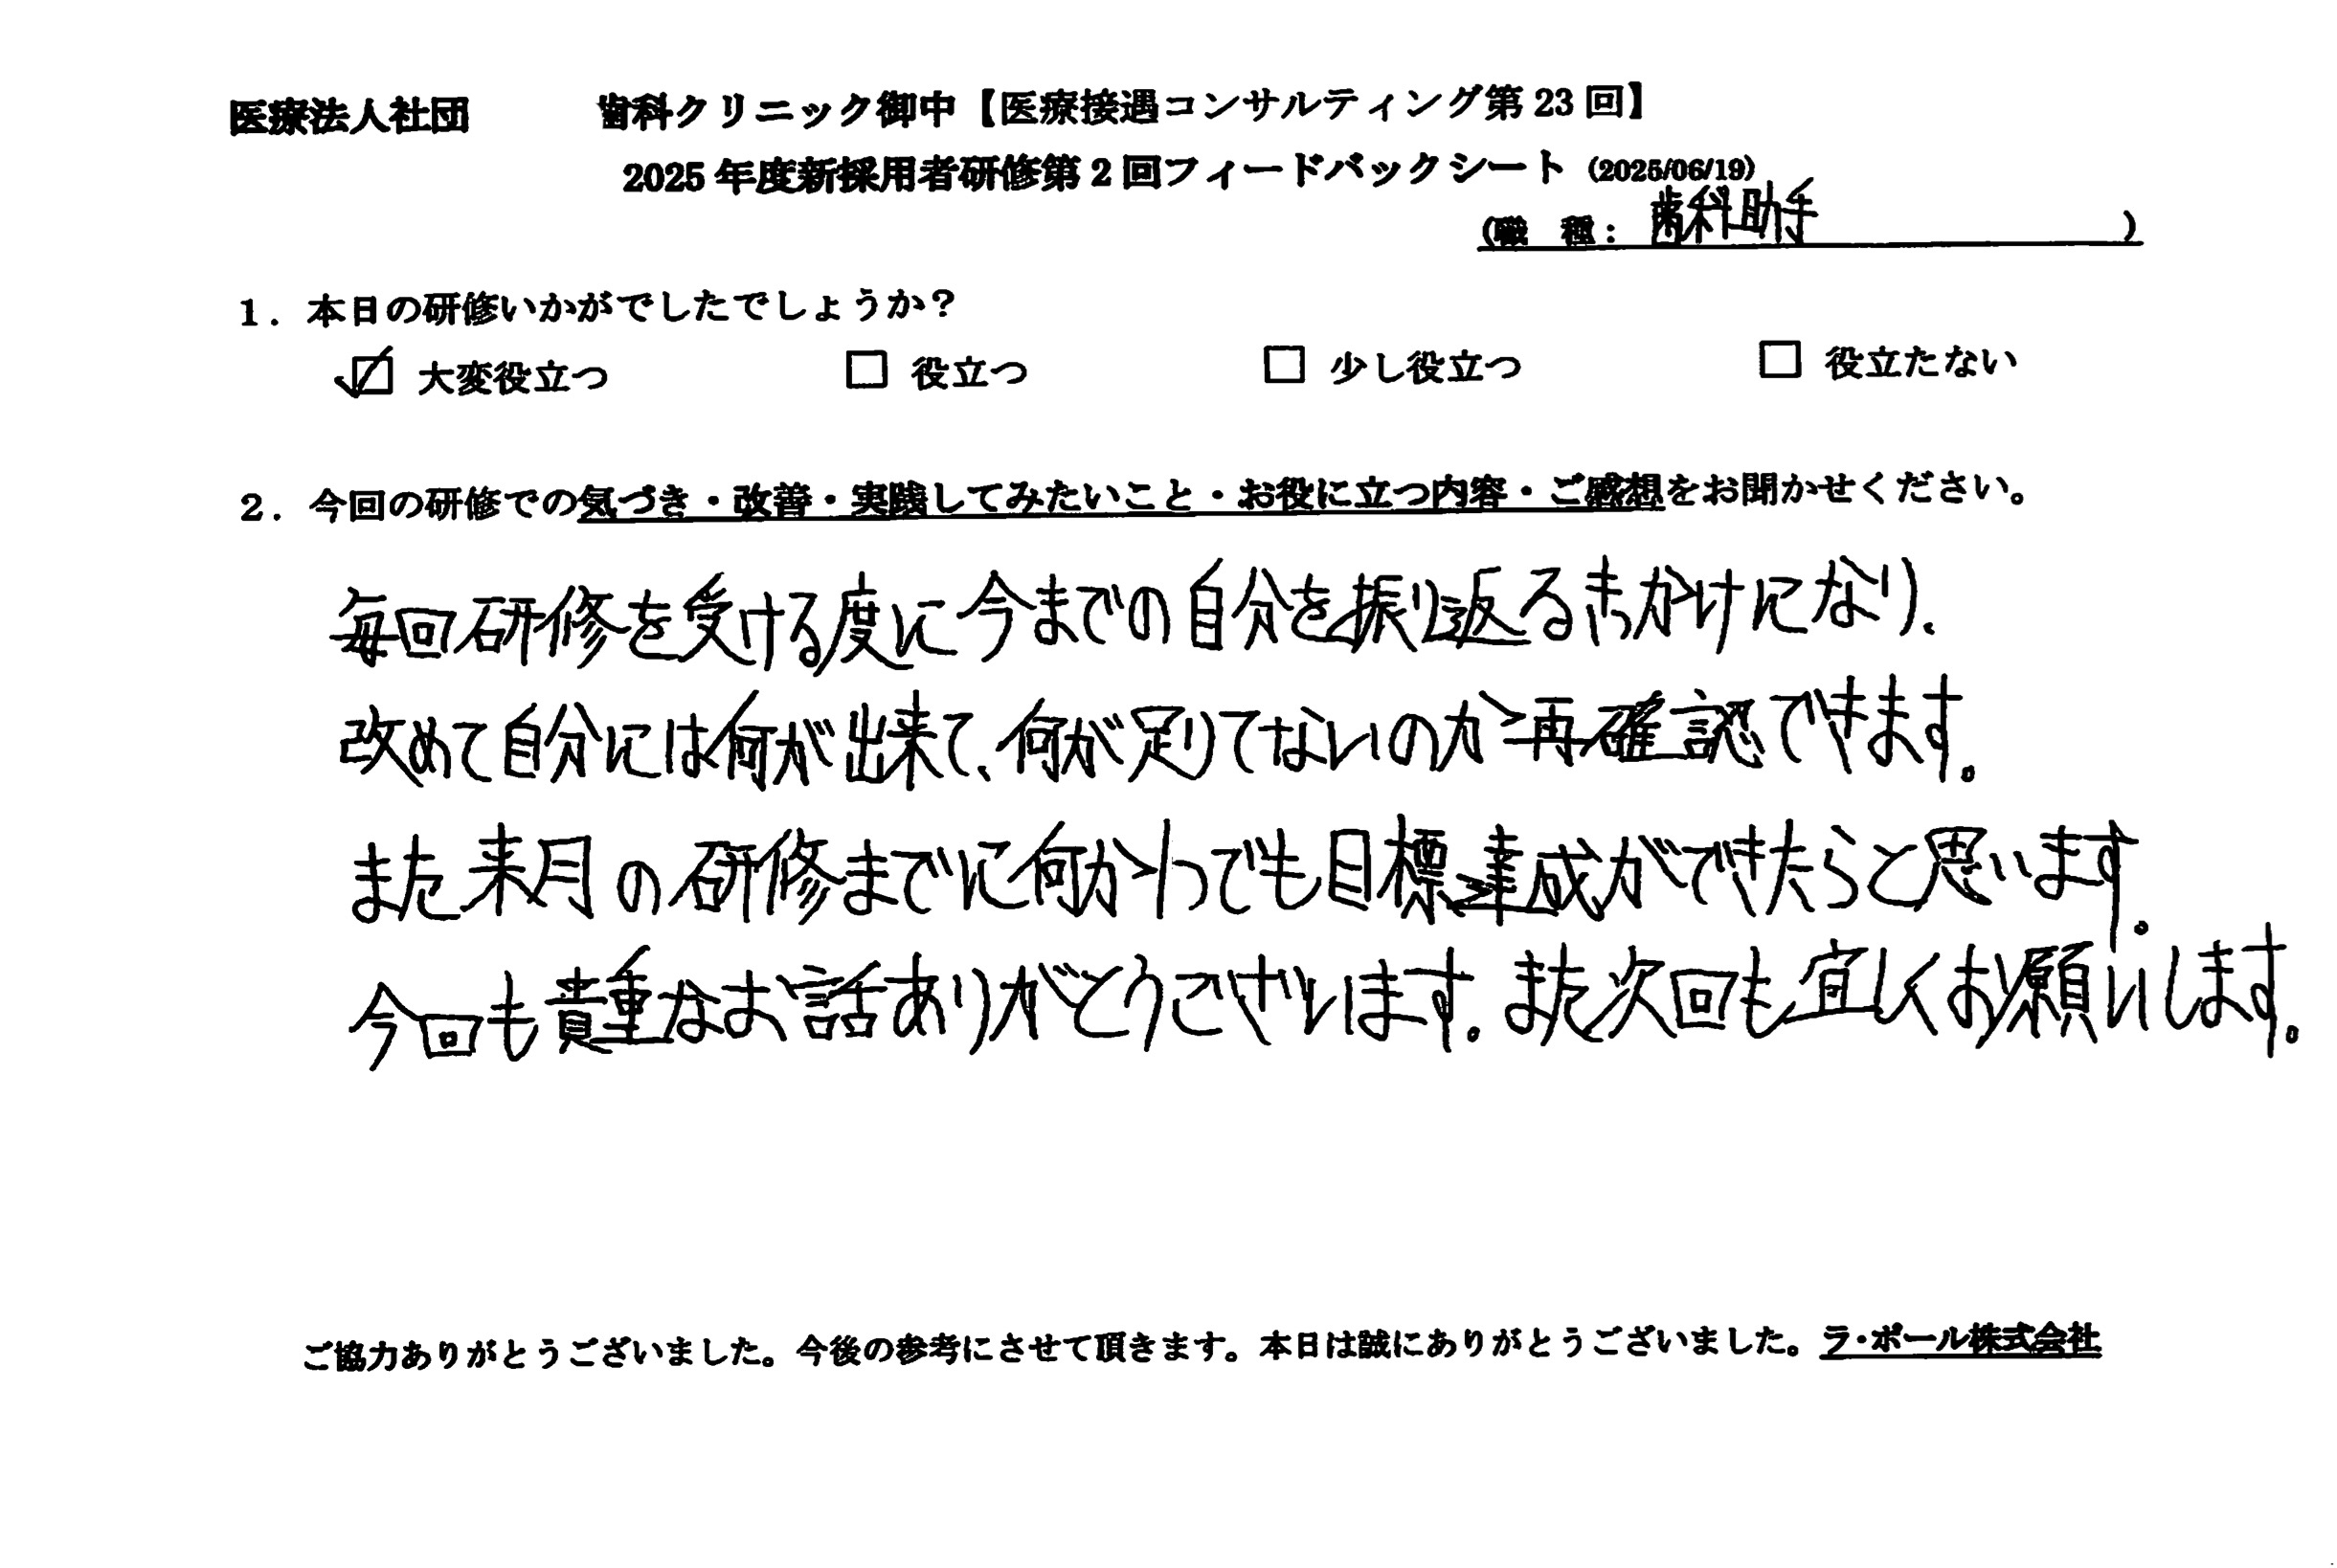 医療法人社団　　　歯科クリニック御中【医療接遇コンサルティング第 23 回】
2025 年度新採用者研修第 2 回フィードバックシート（2025/06/19）
（職　種：　歯科助手　　　　　　　　）
1．本日の研修いかがでしたでしょうか？
☑ 大変役立つ　　　□ 役立つ　　　□ 少し役立つ　　　□ 役立たない
2．今回の研修での気づき・改善・実践してみたいこと・お役に立つ内容・ご感想をお聞かせください。
毎回研修を受ける度に今までの自分を振り返るきっかけになり、
改めて自分には何が出来て、何が足りてないのか再確認できます。
また来月の研修までに何か1つでも目標達成ができたらと思います。
今回も貴重なお話ありがとうございます。また次回も宜しくお願いします。
ご協力ありがとうございました。今後の参考にさせて頂きます。本日は誠にありがとうございました。ラ・ポール株式会社